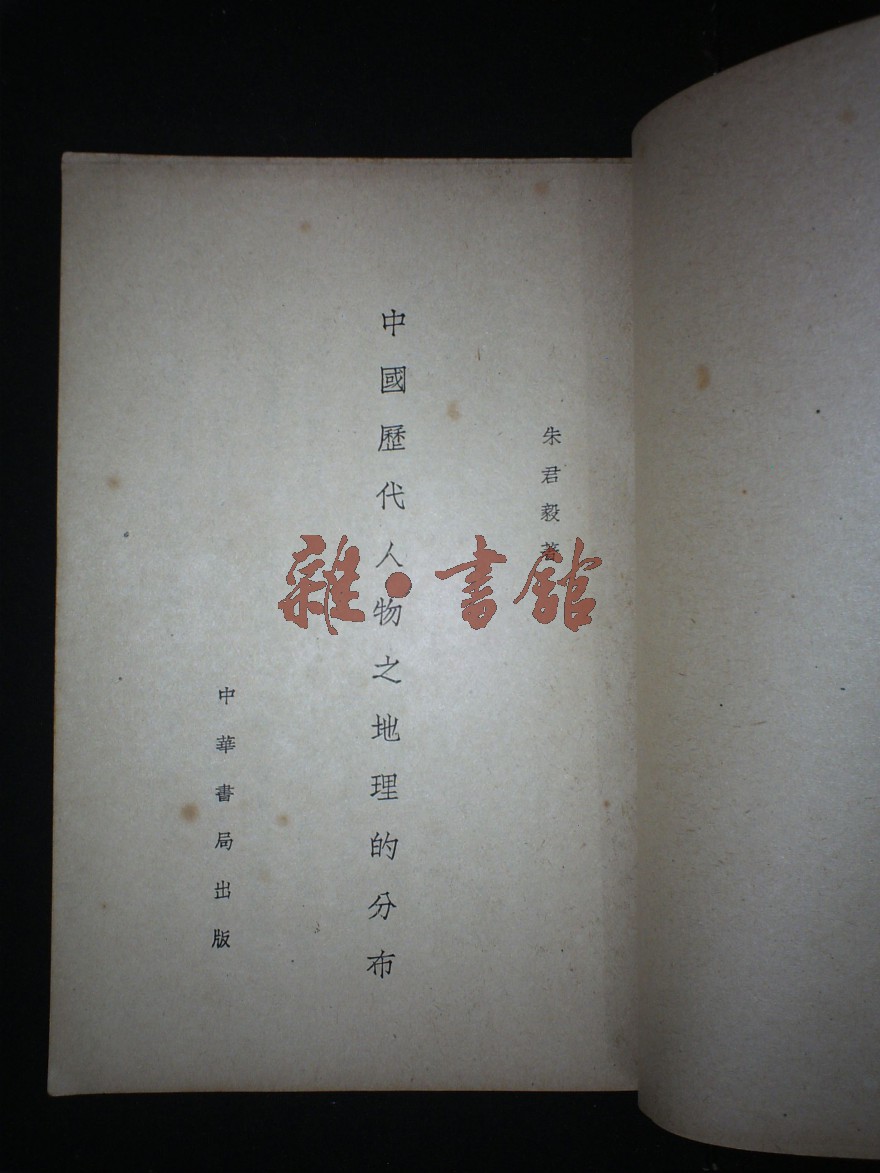 朱君毅著
中國歷代人物之地理的分布
中華書局出版
雜·書館